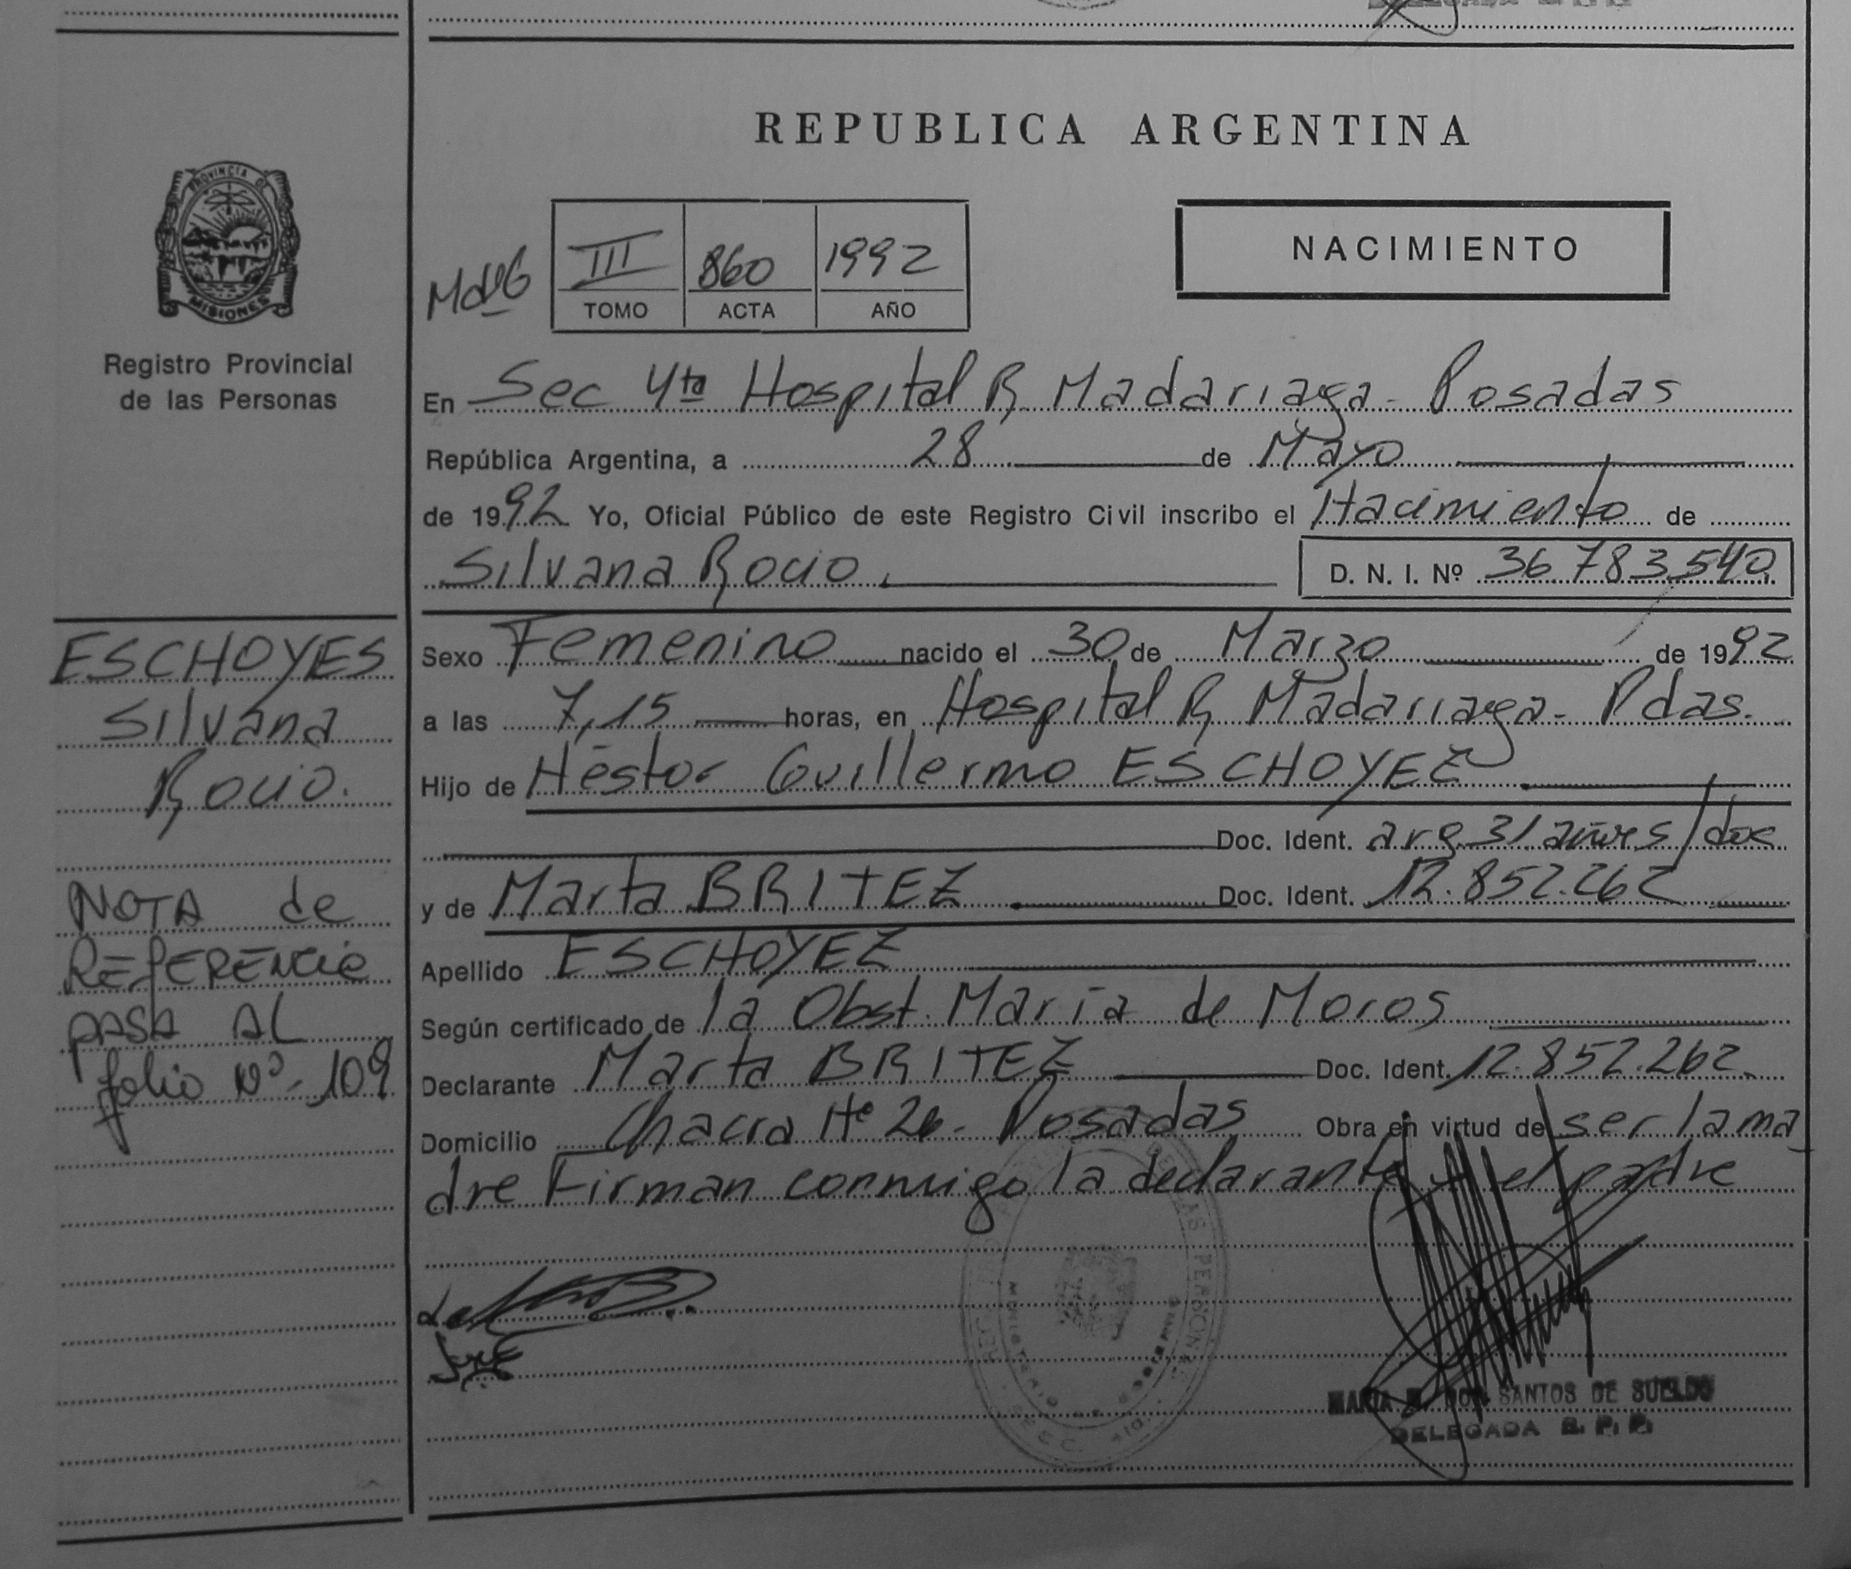 REPUBLICA ARGENTINA
PROVINCIA DE
MISIONES
Registro Provincial
de las Personas
III 860 1992
TOMO ACTA AÑO
NACIMIENTO
En Sec 4ta Hospital R Madariaga - Posadas
República Argentina, a 28 de Mayo
de 1992 Yo, Oficial Público de este Registro Civil inscribo el Nacimiento de
Silvana Rocio. D. N. I. Nº 36 783.540
Sexo Femenino nacido el 30 de Marzo de 1992
a las 7,15 horas, en Hospital R Madariaga - Pdas.
Hijo de Héstor Guillermo ESCHOYEZ
Doc. Ident. arg 31 años/doc
y de Marta BRITEZ Doc. Ident. 12.852.262
Apellido ESCHOYEZ
Según certificado de la Obst. Maria de Moros
Declarante Marta BRITEZ Doc. Ident. 12.852.262.
Domicilio Chacra Nº 26 - Posadas Obra en virtud de ser la ma
dre Firman conmigo la declarante y el padre
MARIA DOS SANTOS DE SUELDO
DELEGADA R. P. P.
ESCHOYES
Silvana
Rocio.
NOTA de
REFERENCIA
PASA AL
folio Nº - 109